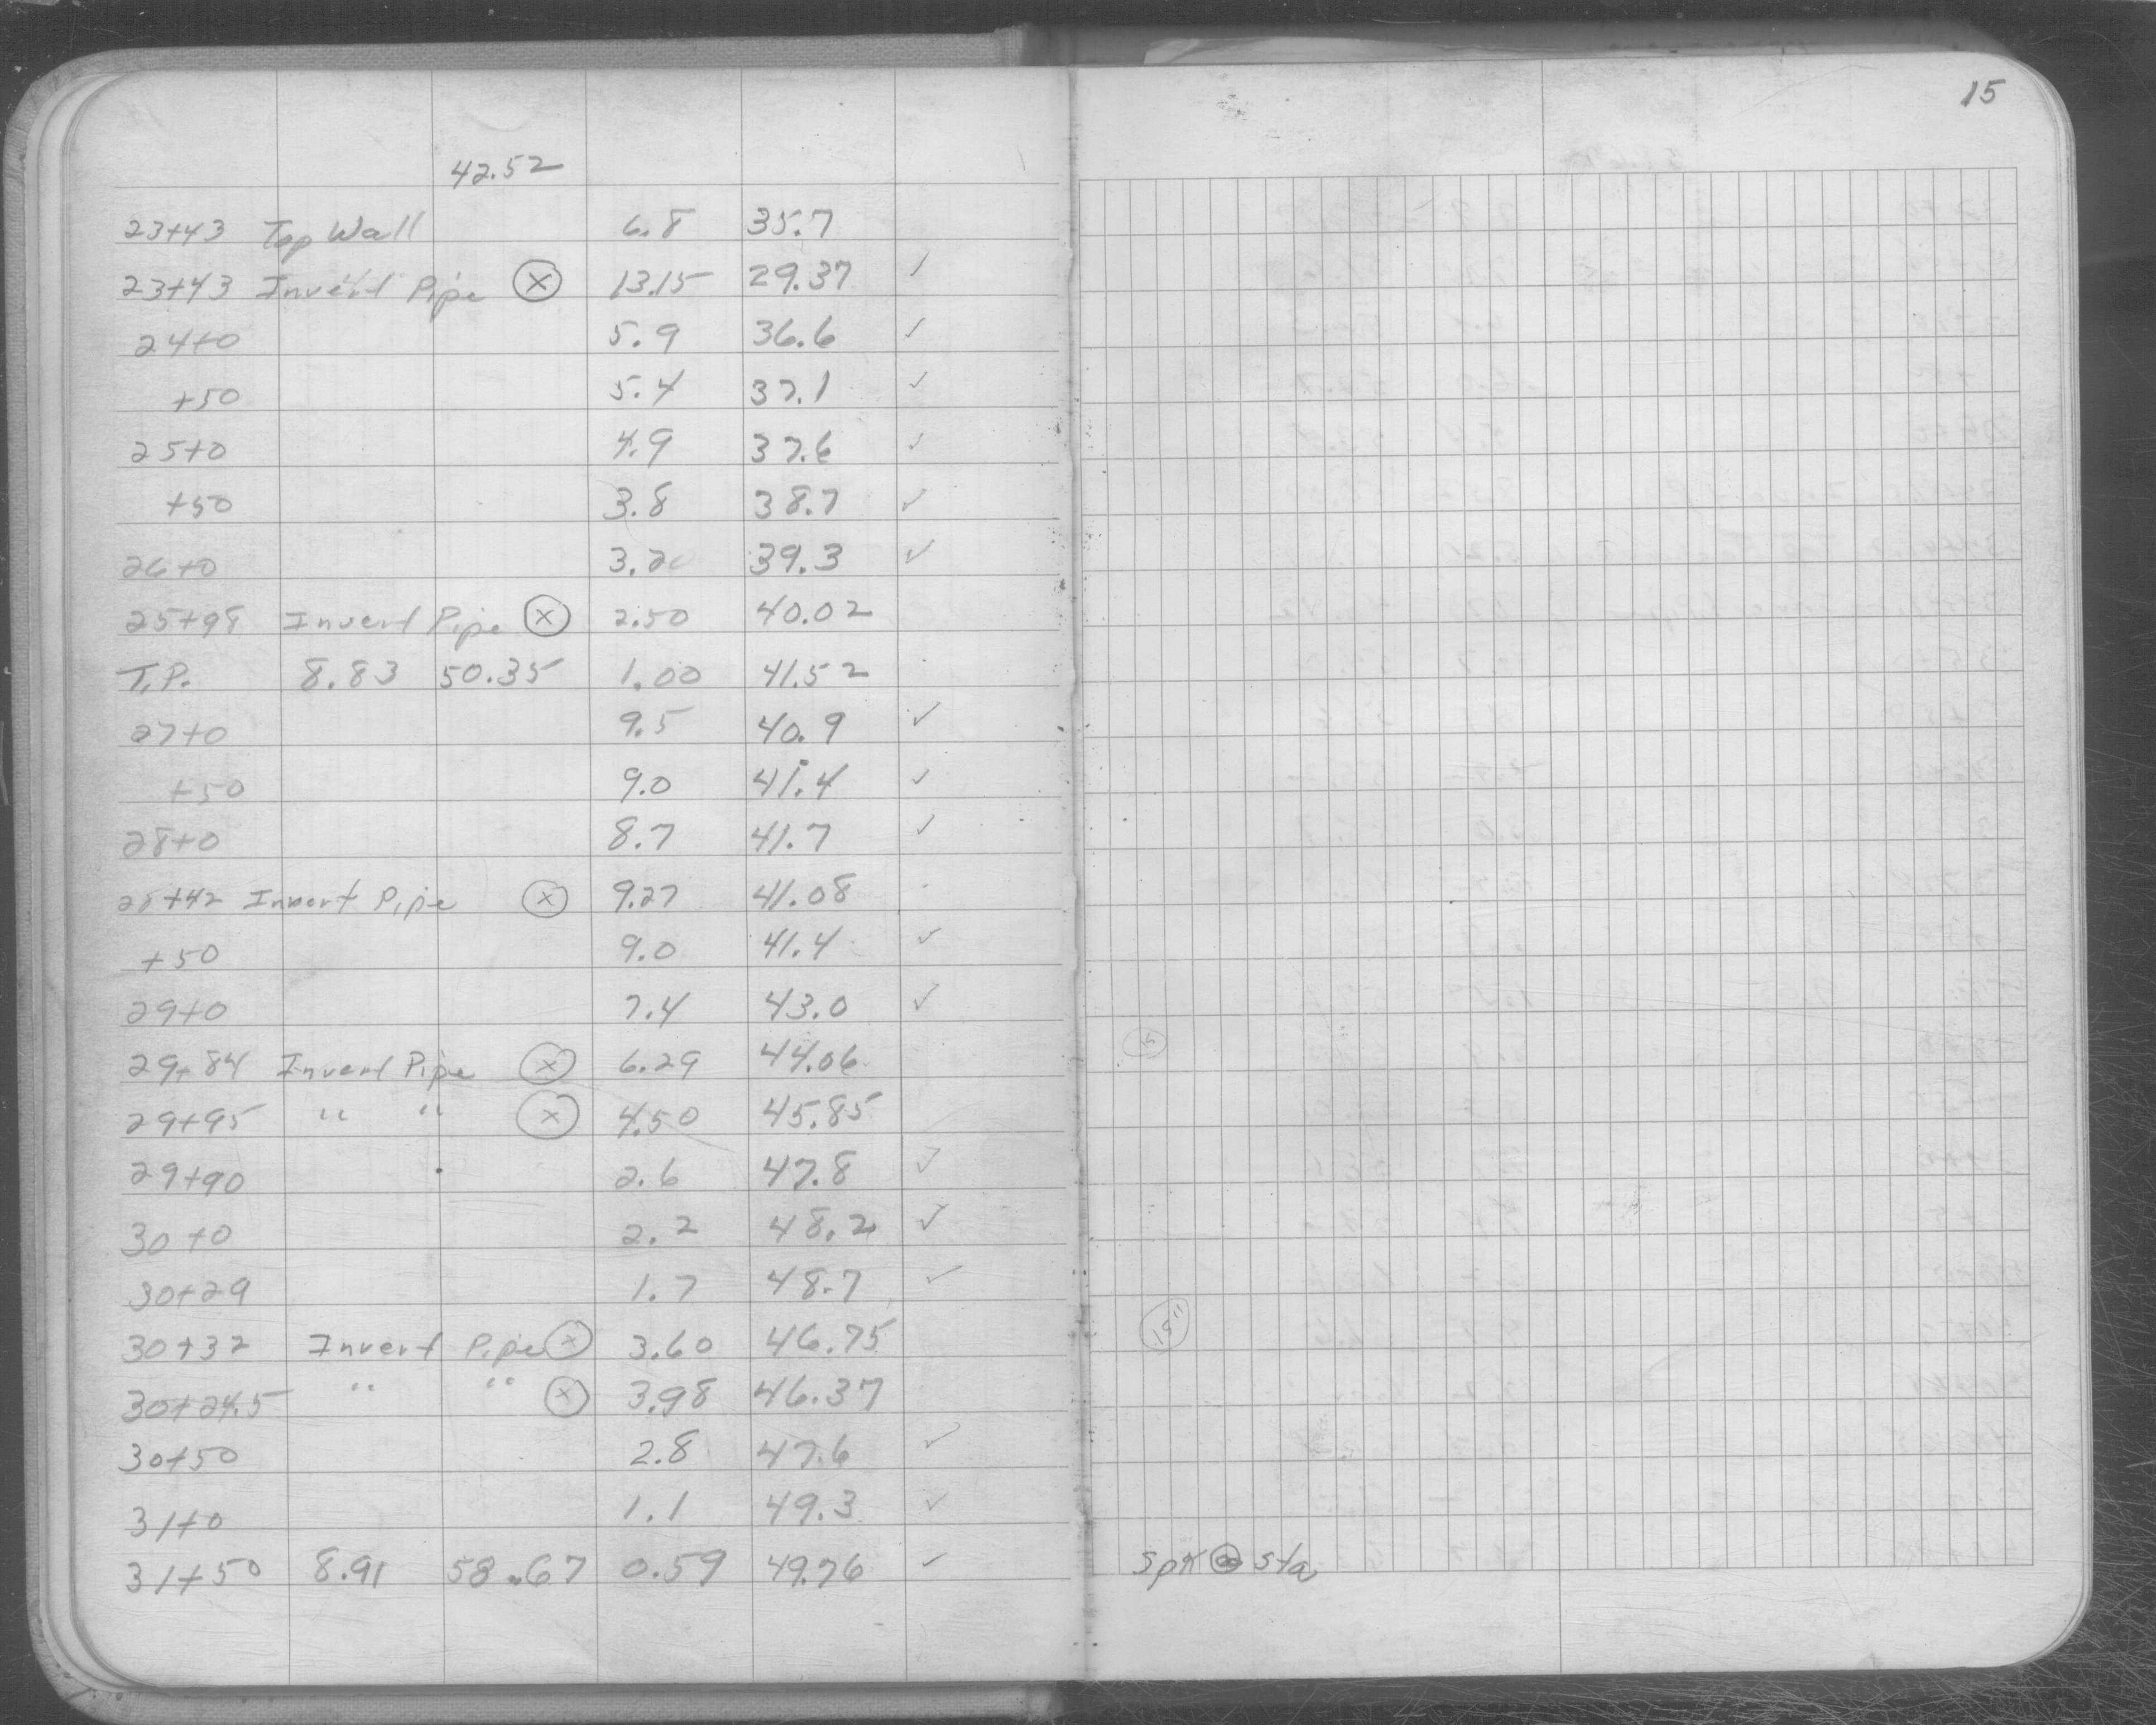 15
42.52
23+43 Top Wall 6.8 35.7
23+43 Invert Pipe ⊗ 13.15 29.37 ✓
24+0 5.9 36.6 ✓
+50 5.4 37.1 ✓
25+0 4.9 37.6 ✓
+50 3.8 38.7 ✓
26+0 3.2 39.3 ✓
25+98 Invert Pipe ⊗ 2.50 40.02
T.P. 8.83 50.35 1.00 41.52
27+0 9.5 40.9 ✓
+50 9.0 41.4 ✓
28+0 8.7 41.7 ✓
28+42 Invert Pipe ⊗ 9.27 41.08
+50 9.0 41.4 ✓
29+0 7.4 43.0 ✓
29+84 Invert Pipe ⊗ 6.29 44.06
29+95 " " ⊗ 4.50 45.85
29+90 2.6 47.8 ✓
30+0 2.2 48.2 ✓
30+29 1.7 48.7 ✓
30+32 Invert Pipe ⊗ 3.60 46.75 15"
30+24.5 " " ⊗ 3.98 46.37
30+50 2.8 47.6 ✓
31+0 1.1 49.3 ✓
31+50 8.91 58.67 0.59 49.76 ✓ Spk @ Sta